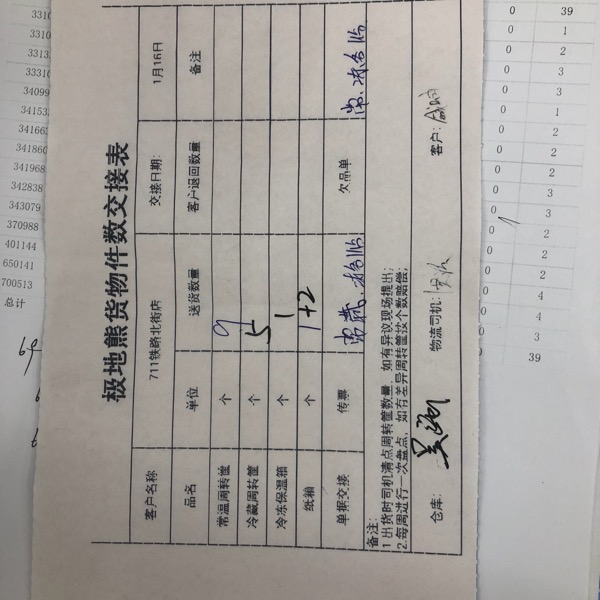 极地熊货物件数交接表
客户名称 711铁路北街店 交接日期: 1月16日
品名 单位 送货数量 客户退回数量 备注
常温周转筐 个 9
冷藏周转筐 个 5
冷冻保温箱 个 1
纸箱 个 1+2
单据交接 传票 欠品单
备注:
1.出货时司机清点周转筐数量,如有异议现场提出;
2.每周进行一次盘点,如有差异周转筐按个数赔偿;
仓库: 物流司机: 客户:
3310
3310
33131
33310
34099
34153
34166
341860
341968
342838
343079
370988
401144
650141
700513
总计
0 39
0 1
0 2
0 3
0 3
0 1
0 2
0 2
0 2
0 3
0 3
0 2
0 2
0 4
0 4
39